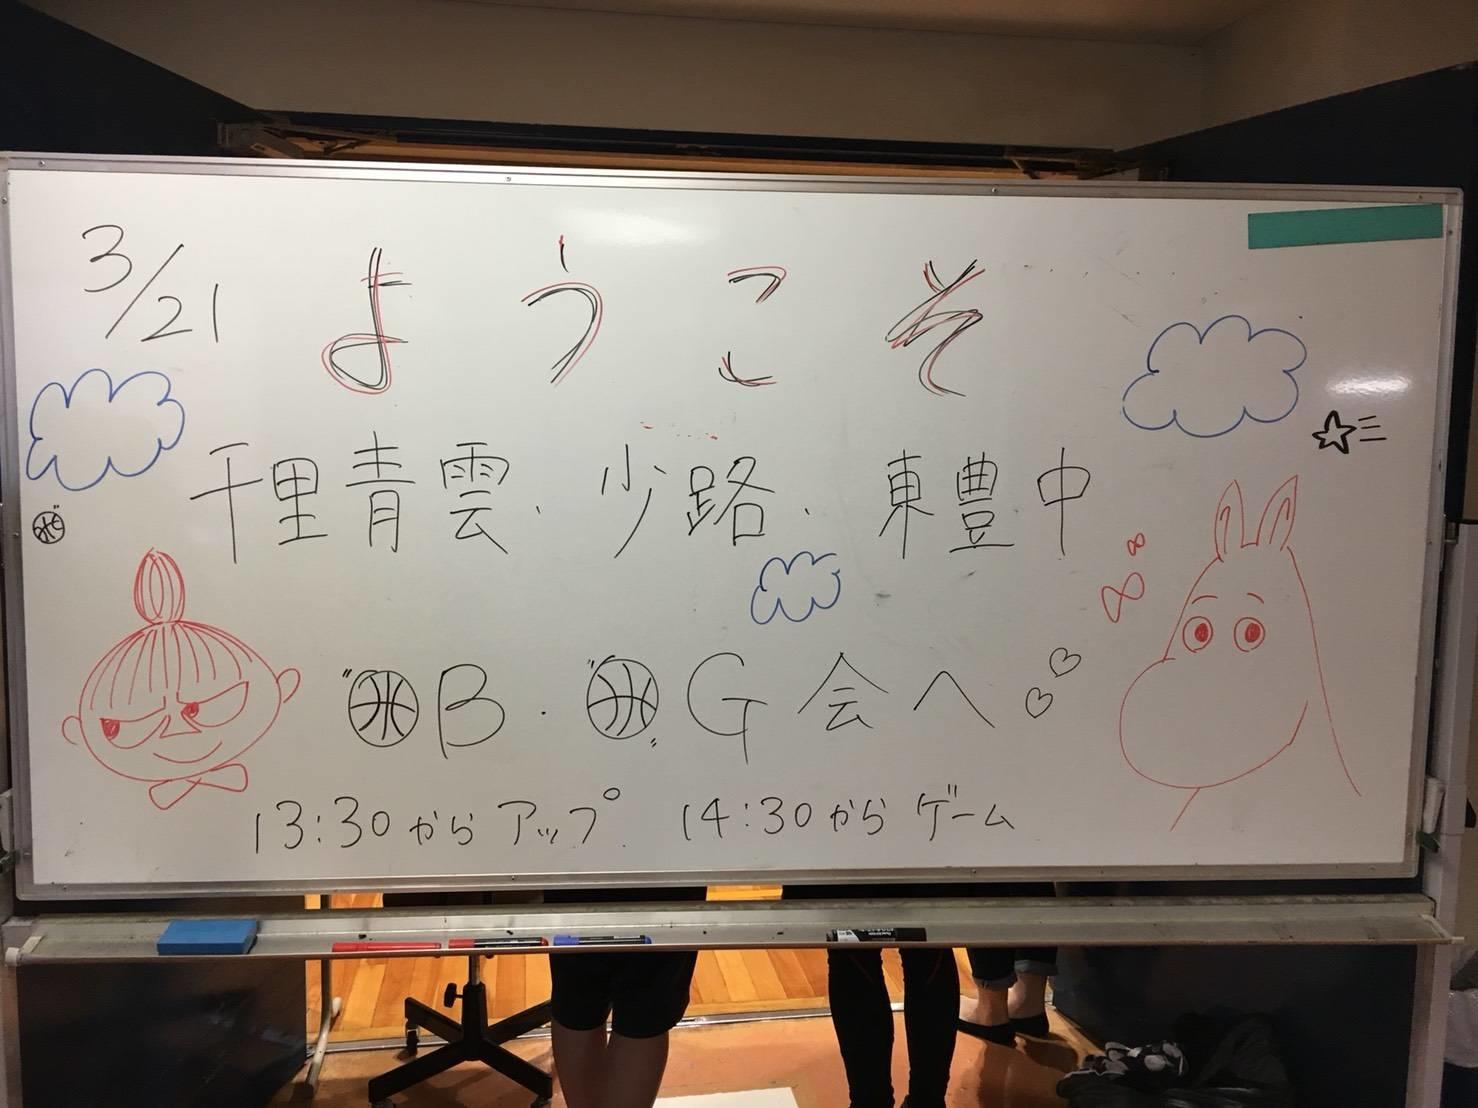 3/21 ようこそ
千里青雲・少路・東豊中
OB・OG会へ
13:30からアップ 14:30からゲーム